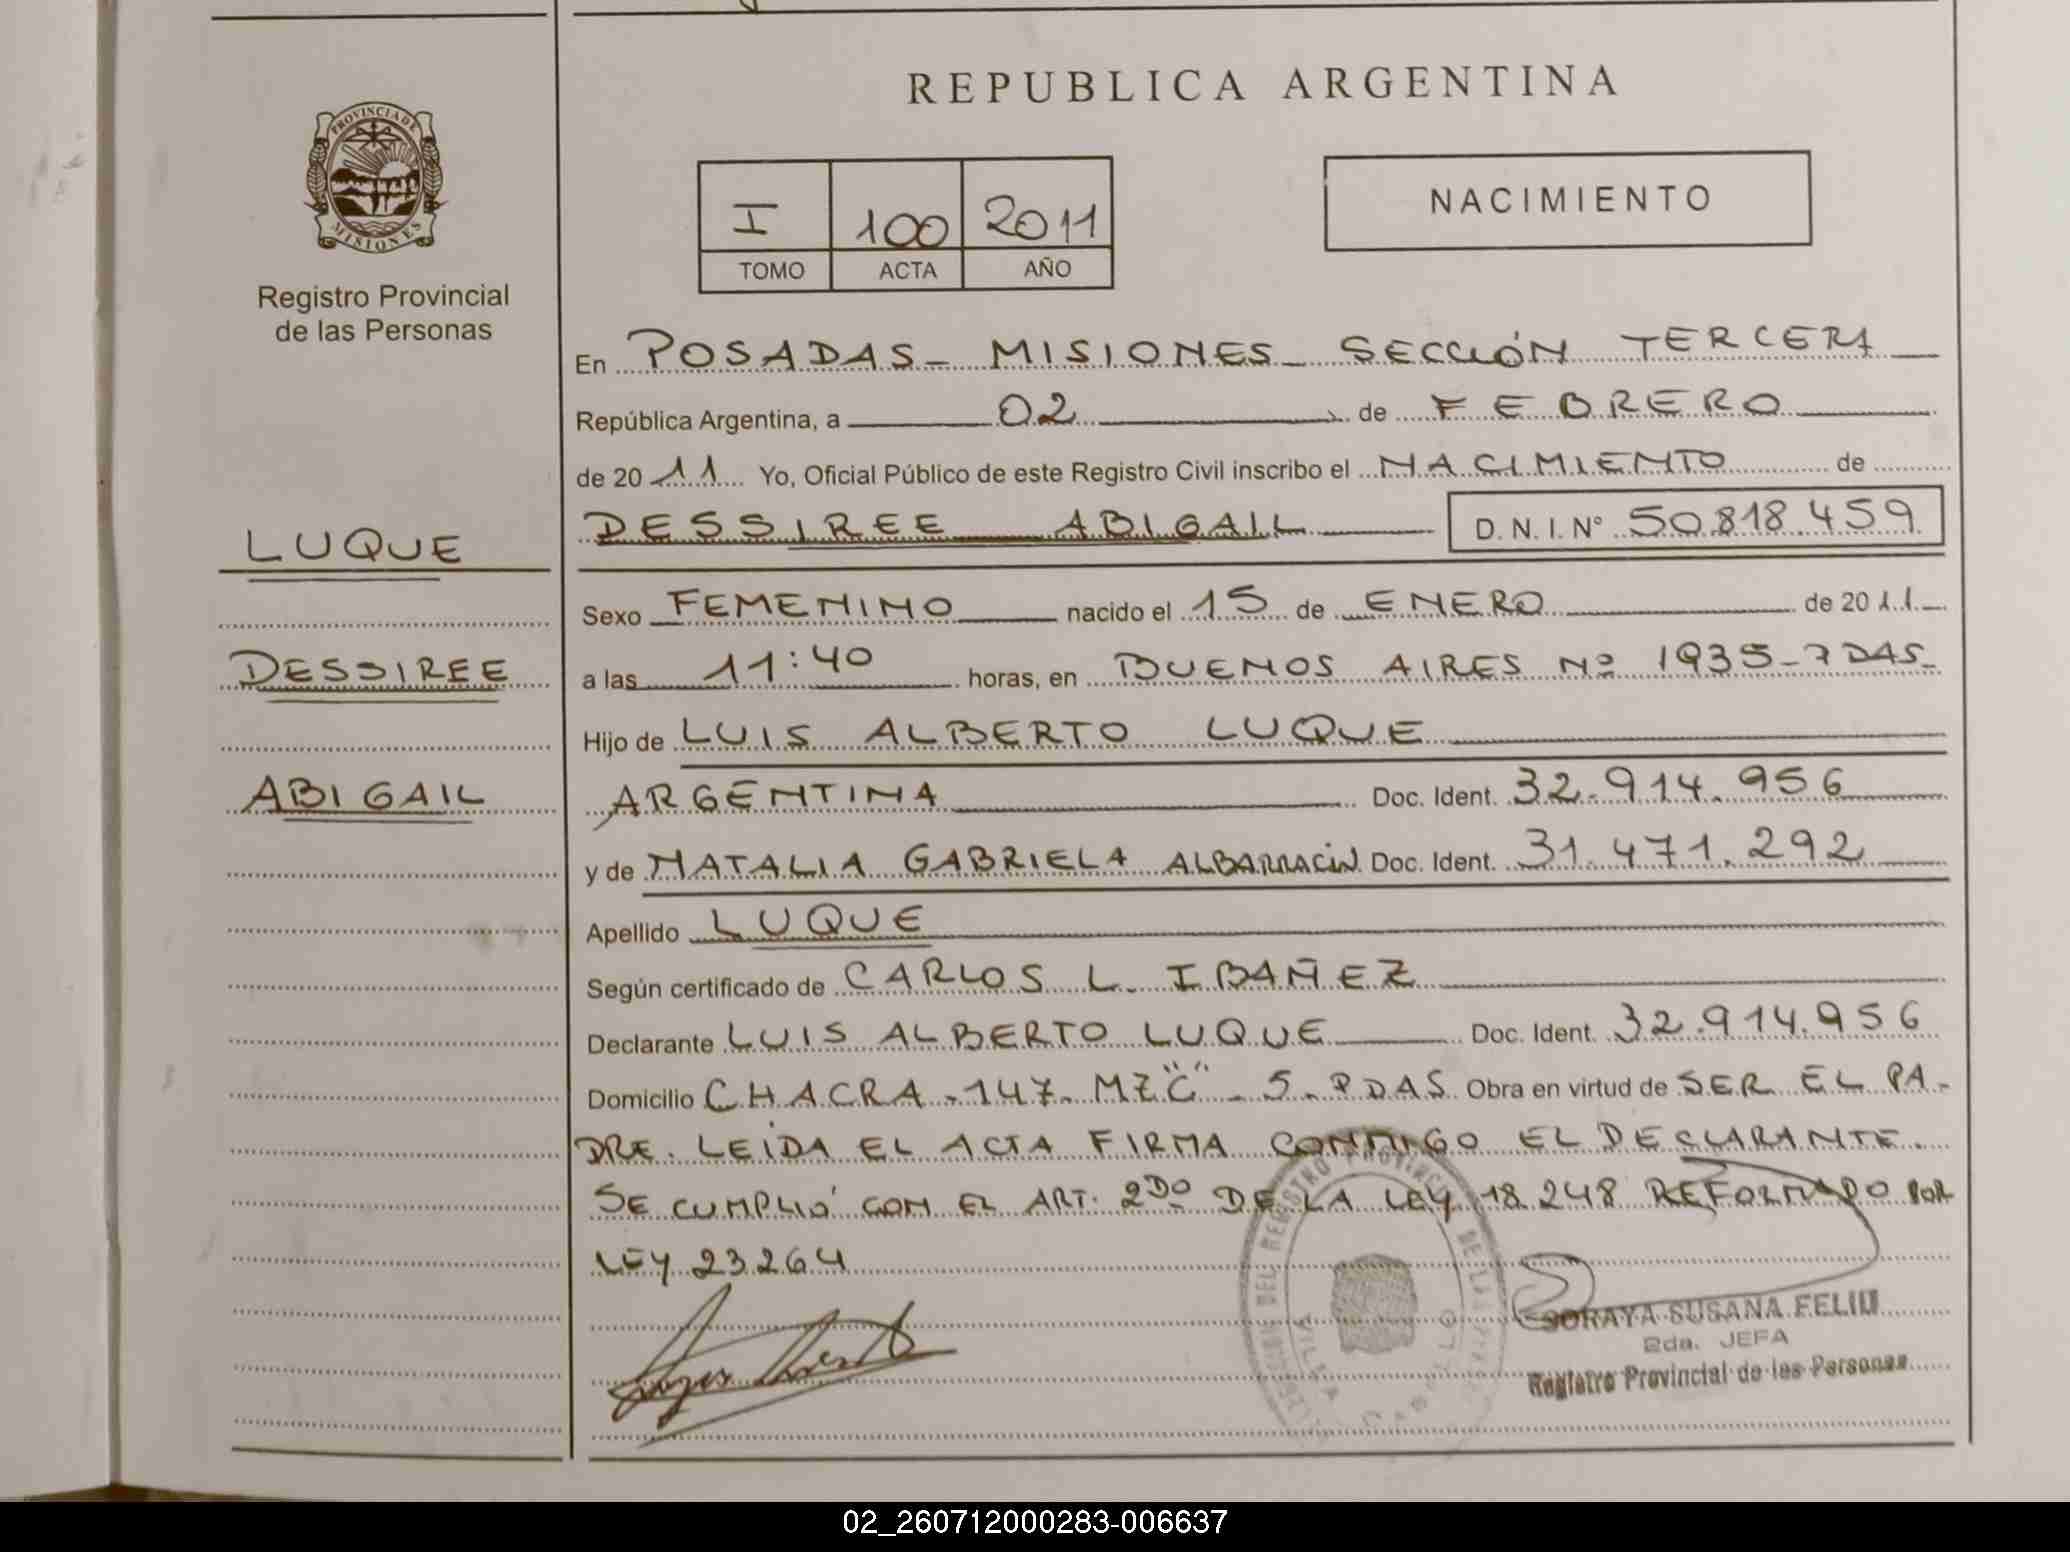 REPUBLICA ARGENTINA
PROVINCIA DE
MISIONES
Registro Provincial
de las Personas
I 100 2011
TOMO ACTA AÑO
NACIMIENTO
En POSADAS - MISIONES - SECCIÓN TERCERA
República Argentina, a 02 de FEBRERO
de 2011 Yo, Oficial Público de este Registro Civil inscribo el NACIMIENTO de
DESSIREE ABIGAIL D. N. I. N° 50.818.459
LUQUE
DESSIREE
ABIGAIL
Sexo FEMENINO nacido el 15 de ENERO de 2011
a las 11:40 horas, en BUENOS AIRES Nº 1935-PDAS-
Hijo de LUIS ALBERTO LUQUE
ARGENTINA Doc. Ident. 32.914.956
y de NATALIA GABRIELA ALBARRACÍN Doc. Ident. 31.471.292
Apellido LUQUE
Según certificado de CARLOS L. IBAÑEZ
Declarante LUIS ALBERTO LUQUE Doc. Ident. 32.914.956
Domicilio CHACRA - 147 - MZ "C" - 5 - PDAS Obra en virtud de SER EL PA-
DRE. LEÍDA EL ACTA FIRMA CONMIGO EL DECLARANTE.
SE CUMPLIÓ CON EL ART. 2DO DE LA LEY 18.248 REFORMADO POR
LEY 23264
SORAYA SUSANA FELIU
2da. JEFA
Registro Provincial de las Personas
02_260712000283-006637